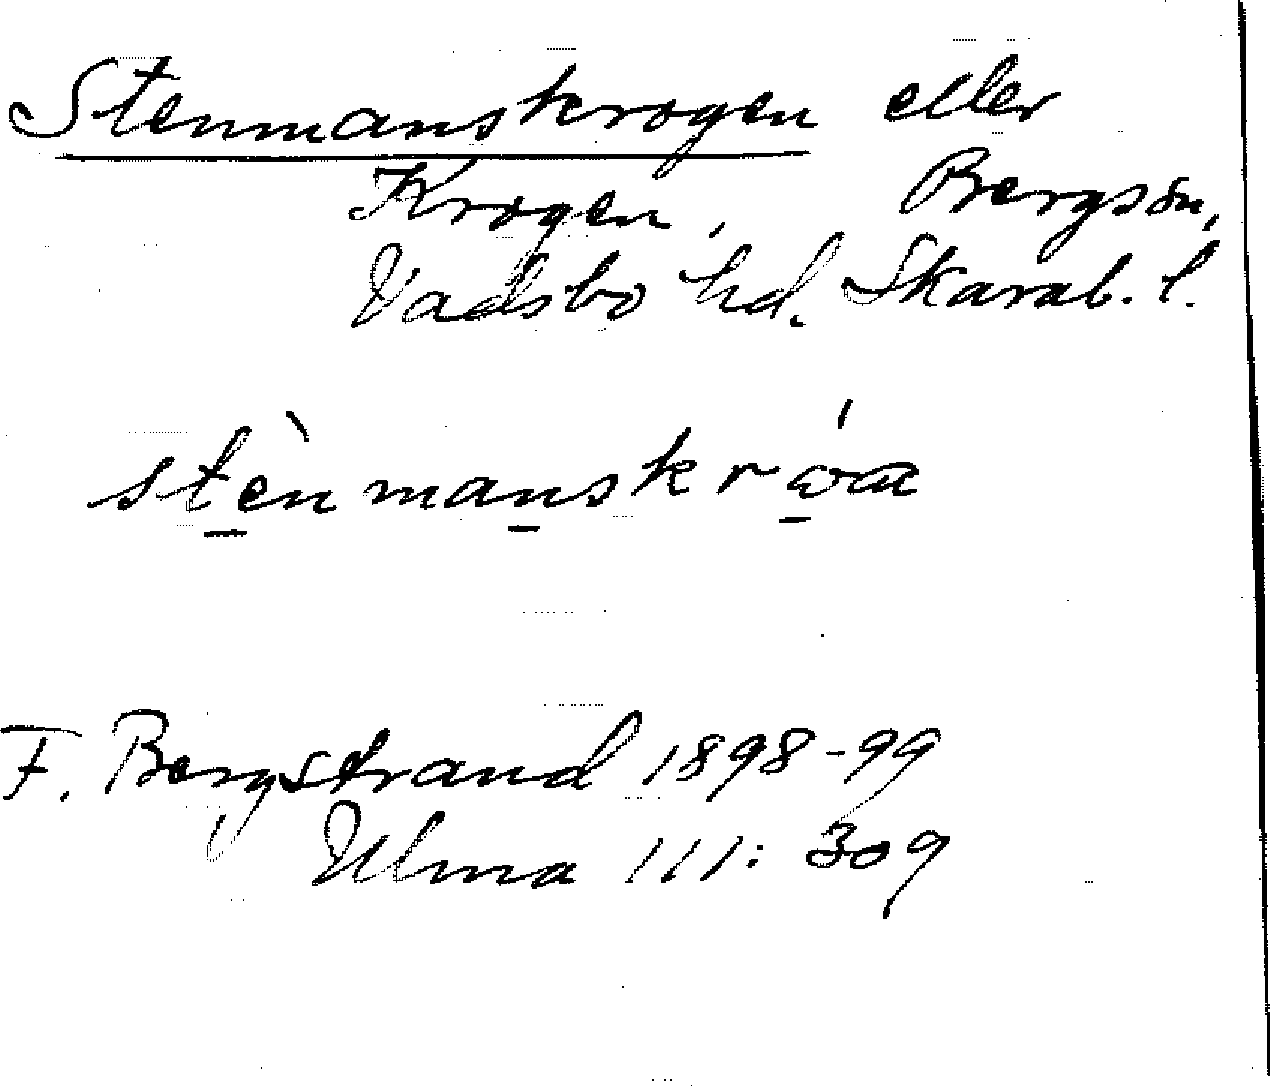 Stenmanskrogen eller
Krogen, Bergsön,
Vadsbo hd. Skarab. l.
stènmanskrωα
F. Bergstrand 1898-99
Ulma 111: 309